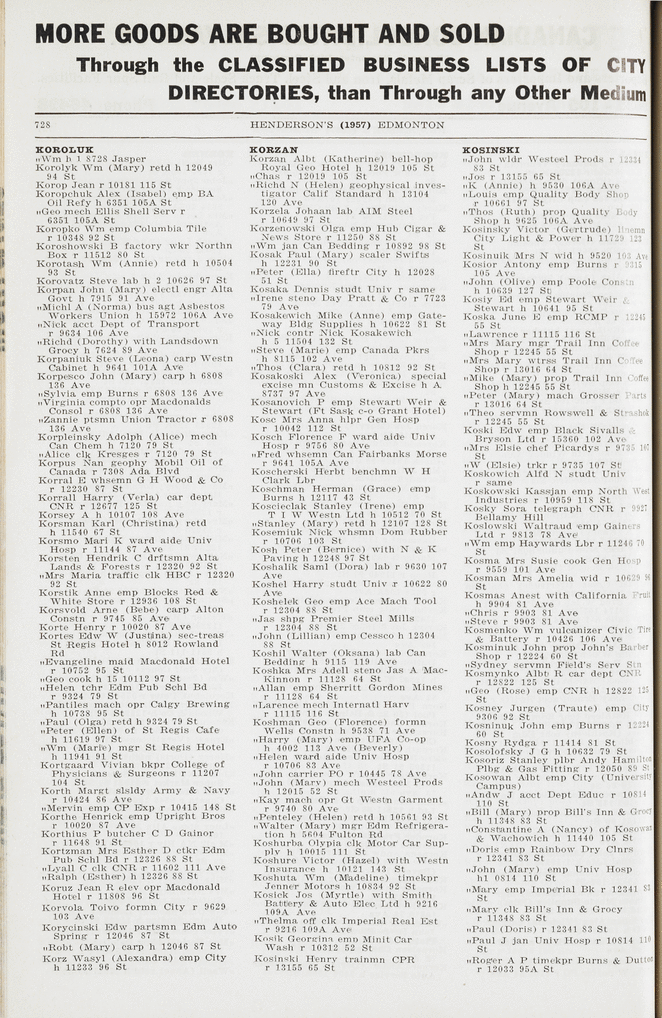 MORE GOODS ARE BOUGHT AND SOLD
Through the CLASSIFIED BUSINESS LISTS OF CITY
DIRECTORIES, than Through any Other Medium
728
HENDERSON'S (1957) EDMONTON
KOROLUK
"Wm h 1 8728 Jasper
Korolyk Wm (Mary) retd h 12049
94 St
Korop Jean r 10181 115 St
Koropchuk Alex (Isabel) emp BA
Oil Refy h 6351 105A St
"Geo mech Ellis Shell Serv r
6351 105A St
Koropko Wm emp Columbia Tile
r 10348 92 St
Koroshowski B factory wkr Northn
Box r 11512 80 St
Korotash Wm (Annie) retd h 10504
93 St
Korovatz Steve lab h 2 10626 97 St
Korpan John (Mary) electl engr Alta
Govt h 7915 91 Ave
"Michl A (Norma) bus agt Asbestos
Workers Union h 15972 106A Ave
"Nick acct Dept of Transport
r 9634 106 Ave
"Richd (Dorothy) with Landsdown
Grocy h 7624 89 Ave
Korpaniuk Steve (Leona) carp Westn
Cabinet h 9641 101A Ave
Korpesco John (Mary) carp h 6808
136 Ave
"Sylvia emp Burns r 6808 136 Ave
"Virginia compto opr Macdonalds
Consol r 6808 136 Ave
"Zannie ptsmn Union Tractor r 6808
136 Ave
Korpleinsky Adolph (Alice) mech
Can Chem h 7120 79 St
"Alice clk Kresges r 7120 79 St
Korpus Nan geophy Mobil Oil of
Canada r 7308 Ada Blvd
Korral E whsemn G H Wood & Co
r 12230 87 St
Korrall Harry (Verla) car dept
CNR r 12677 125 St
Korsey A h 10107 108 Ave
Korsman Karl (Christina) retd
h 11540 67 St
Korsmo Mari K ward aide Univ
Hosp r 11144 87 Ave
Korsten Hendrik C drftsmn Alta
Lands & Forests r 12320 92 St
"Mrs Maria traffic clk HBC r 12320
92 St
Korstik Anne emp Blocks Red &
White Store r 12936 108 St
Korsvold Arne (Bebe) carp Alton
Constn r 9745 85 Ave
Korte Henry r 10020 87 Ave
Kortes Edw W (Justina) sec-treas
St Regis Hotel h 8012 Rowland
Rd
"Evangeline maid Macdonald Hotel
r 10752 95 St
"Geo cook h 15 10112 97 St
"Helen tchr Edm Pub Schl Bd
r 9324 79 St
"Pantiles mach opr Calgy Brewing
h 10738 95 St
"Paul (Olga) retd h 9324 79 St
"Peter (Ellen) of St Regis Cafe
h 11619 97 St
"Wm (Marie) mgr St Regis Hotel
h 11941 91 St
Kortgaard Vivian bkpr College of
Physicians & Surgeons r 11207
104 St
Korth Margt slsldy Army & Navy
r 10424 86 Ave
"Mervin emp CP Exp r 10415 148 St
Korthe Henrick emp Upright Bros
r 10020 87 Ave
Korthius P butcher C D Gainor
r 11648 91 St
Kortzman Mrs Esther D ctkr Edm
Pub Schl Bd r 12326 88 St
"Lyall C clk CNR r 11602 111 Ave
"Ralph (Esther) h 12326 88 St
Koruz Jean R elev opr Macdonald
Hotel r 11808 96 St
Korvola Toivo formn City r 9629
103 Ave
Korycinski Edw partsmn Edm Auto
Spring r 12046 87 St
"Robt (Mary) carp h 12046 87 St
Korz Wasyl (Alexandra) emp City
h 11233 96 St
KORZAN
Korzan Albt (Katherine) bell-hop
Royal Geo Hotel h 12019 105 St
"Chas r 12019 105 St
"Richd N (Helen) geophysical inves-
tigator Calif Standard h 13104
120 Ave
Korzela Johaan lab AIM Steel
r 10649 97 St
Korzenowski Olga emp Hub Cigar &
News Store r 11250 88 St
"Wm jan Can Bedding r 10892 98 St
Kosak Paul (Mary) scaler Swifts
h 12231 90 St
"Peter (Ella) fireftr City h 12028
51 St
Kosaka Dennis studt Univ r same
"Irene steno Day Pratt & Co r 7723
79 Ave
Kosakowich Mike (Anne) emp Gate-
way Bldg Supplies h 10622 81 St
"Nick contr Nick Kosakewich
h 5 11504 132 St
"Steve (Marie) emp Canada Pkrs
h 8115 102 Ave
"Thos (Clara) retd h 10812 92 St
Kosakoski Alex (Veronica) special
excise mn Customs & Excise h A
8737 97 Ave
Kosanovich P emp Stewart Weir &
Stewart (Ft Sask c-o Grant Hotel)
Kosc Mrs Anna hlpr Gen Hosp
r 10042 112 St
Kosch Florence F ward aide Univ
Hosp r 9756 80 Ave
"Fred whsemn Can Fairbanks Morse
r 9641 105A Ave
Koscherski Herbt benchmn W H
Clark Lbr
Koschman Herman (Grace) emp
Burns h 12117 43 St
Koscieclak Stanley (Irene) emp
T I W Westn Ltd h 10512 70 St
"Stanley (Mary) retd h 12107 128 St
Kosemiuk Nick whsmn Dom Rubber
r 10706 103 St
Kosh Peter (Bernice) with N & K
Paving h 12248 97 St
Koshalik Saml (Dora) lab r 9630 107
Ave
Koshel Harry studt Univ r 10622 80
Ave
Koshelek Geo emp Ace Mach Tool
r 12304 88 St
"Jas shpg Premier Steel Mills
r 12304 88 St
"John (Lillian) emp Cessco h 12304
88 St
Koshil Walter (Oksana) lab Can
Bedding h 9115 119 Ave
Koshka Mrs Adell steno Jas A Mac-
Kinnon r 11128 64 St
"Allan emp Sherritt Gordon Mines
r 11128 64 St
"Larence mech Internatl Harv
r 11115 116 St
Koshman Geo (Florence) formn
Wells Constn h 9538 71 Ave
"Harry (Mary) emp UFA Co-op
h 4002 113 Ave (Beverly)
"Helen ward aide Univ Hosp
r 10706 83 Ave
"John carrier PO r 10445 78 Ave
"John (Mary) mech Westeel Prods
h 12015 52 St
"Kay mach opr Gt Westn Garment
r 9740 80 Ave
"Penteley (Helen) retd h 10561 93 St
"Walter (Mary) mgr Edm Refrigera-
tion h 5604 Fulton Rd
Koshurba Olypia clk Motor Car Sup-
ply h 10015 111 St
Koshure Victor (Hazel) with Westn
Insurance h 10121 143 St
Koshuta Wm (Madeline) timekpr
Jenner Motors h 10834 92 St
Kosick Jos (Myrtle) with Smith
Battery & Auto Elec Ltd h 9216
109A Ave
"Thelma off clk Imperial Real Est
r 9216 109A Ave
Kosik Georgina emp Minit Car
Wash r 10312 52 St
Kosinski Henry trainmn CPR
r 13155 65 St
KOSINSKI
"John wldr Westeel Prods r 12334
83 St
"Jos r 13155 65 St
"K (Annie) h 9530 106A Ave
"Louis emp Quality Body Shop
r 10661 97 St
"Thos (Ruth) prop Quality Body
Shop h 9625 106A Ave
Kosinsky Victor (Gertrude) linemn
City Light & Power h 11729 123
St
Kosinuik Mrs N wid h 9520 105 Ave
Kosior Antony emp Burns r 9315
105 Ave
"John (Olive) emp Poole Constn
h 10639 127 St
Kosiy Ed emp Stewart Weir &
Stewart h 10641 95 St
Koska June E emp RCMP r 12245
55 St
"Lawrence r 11115 116 St
"Mrs Mary mgr Trail Inn Coffee
Shop r 12245 55 St
"Mrs Mary wtrss Trail Inn Coffee
Shop r 13016 64 St
"Mike (Mary) prop Trail Inn Coffee
Shop h 12245 55 St
"Peter (Mary) mach Grosser Parts
r 13016 64 St
"Theo servmn Rowswell & Strashok
r 12245 55 St
Koski Edw emp Black Sivalls &
Bryson Ltd r 15360 102 Ave
"Mrs Elsie chef Picardys r 9735 107
St
"W (Elsie) trkr r 9735 107 St
Koskowich Alfd N studt Univ
r same
Koskowski Kassjan emp North West
Industries r 10959 118 St
Kosky Sora telegraph CNR r 9927
Bellamy Hill
Koslowski Waltraud emp Gainers
Ltd r 9813 78 Ave
"Wm emp Haywards Lbr r 11246 70
St
Kosma Mrs Susie cook Gen Hosp
r 9559 101 Ave
Kosman Mrs Amelia wid r 10629 96
St
Kosmas Anest with California Fruit
h 9904 81 Ave
"Chris r 9903 81 Ave
"Steve r 9903 81 Ave
Kosmenko Wm vulcanizer Civic Tire
& Battery r 10426 106 Ave
Kosminuk John prop John's Barber
Shop r 12224 60 St
"Sydney servmn Field's Serv Stn
Kosmynko Albt R car dept CNR
r 12822 125 St
"Geo (Rose) emp CNR h 12822 125
St
Kosney Jurgen (Traute) emp City
9306 92 St
Kosninuk John emp Burns r 12224
60 St
Kosny Rydga r 11414 81 St
Kosolofsky J G h 10632 79 St
Kosoriz Stanley plbr Andy Hamilton
Plbg & Gas Fitting r 12050 89 St
Kosowan Albt emp City (University
Campus)
"Andw J acct Dept Educ r 10814
110 St
"Bill (Mary) prop Bill's Inn & Grocy
h 11348 83 St
"Constantine A (Nancy) of Kosowan
& Wachowich h 11440 105 St
"Doris emp Rainbow Dry Clnrs
r 12341 83 St
"John (Mary) emp Univ Hosp
h1 0814 110 St
"Mary emp Imperial Bk r 12341 83
St
"Mary clk Bill's Inn & Grocy
r 11348 83 St
"Paul (Doris) r 12341 83 St
"Paul J jan Univ Hosp r 10814 110
St
"Roger A P timekpr Burns & Dutton
r 12033 95A St